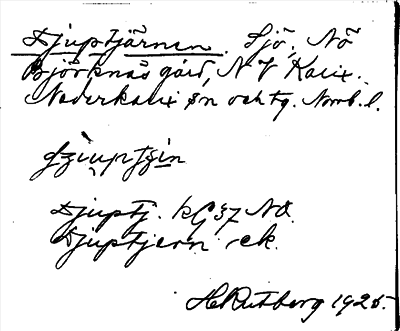 Djuptjärnen. Sjö, NÖ
Björknäs gård, NV Kalix.
Nederkalix sn och tg. Norrb. l.
Djuptj. kG 37 NO.
Djuptjern ek.
H. Rutberg 1925.